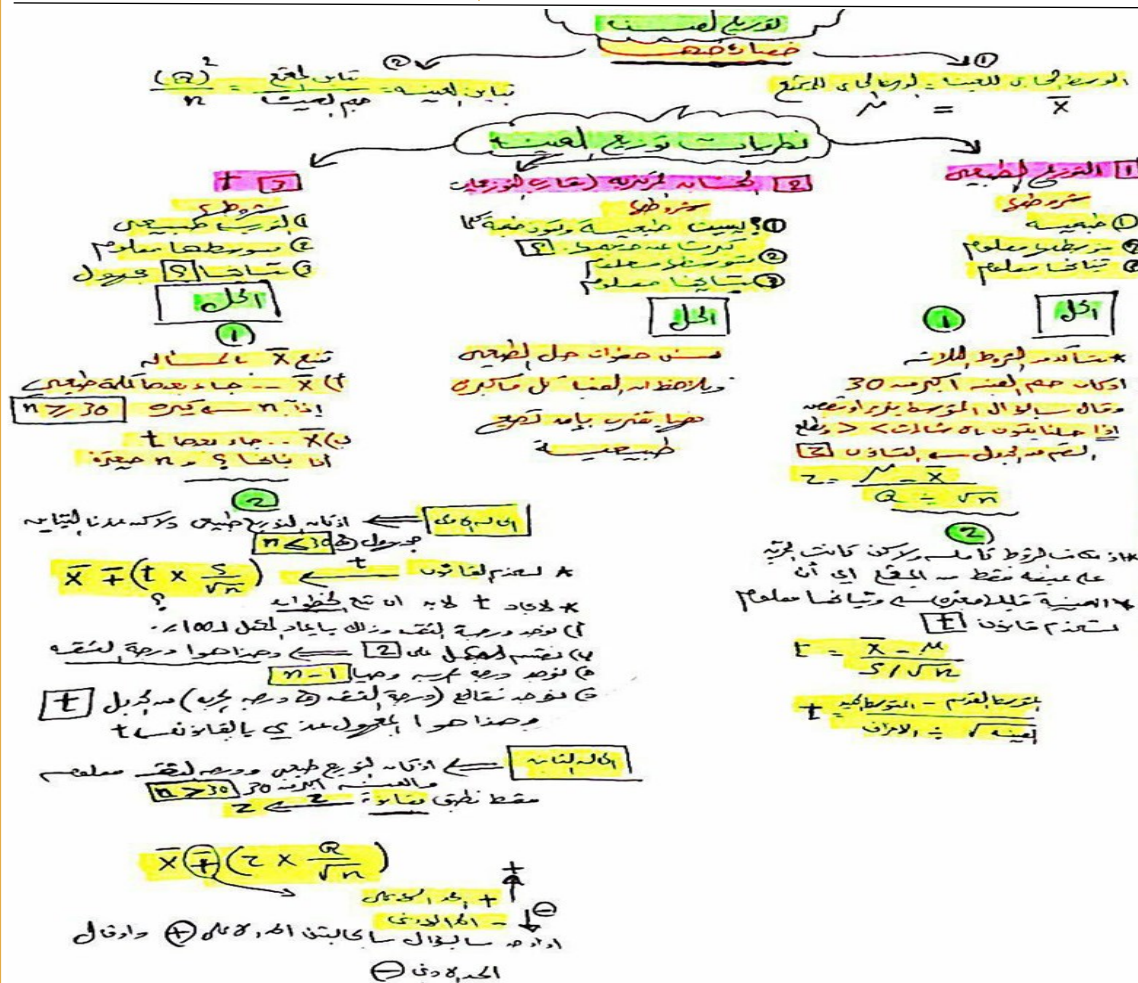 توزيع العينة
خصائصها
①
الوسط الحسابي للعينة = الوسط الحسابي للمجتمع
x̄ = μ
②
تباين العينة = تباين المجتمع / حجم العينة = (Q)² / n
نظريات توزيع العينة
1 التوزيع الطبيعي
شروطها
① طبيعية
② متوسطها معلوم
③ تباينها معلوم
الحل
①
* نتأكد من الشروط الثلاثة
اذا كان حجم العينة اكبر من 30
وقال بالسؤال المتوسط يزيد او ينقص
Z = μ - x̄ / Q ÷ √n
②
على عينة فقط من المجتمع اي أن
العينة قليلة (صغيرة) وتباينها معلوم
نستخدم قانون t
t = x̄ - μ / S/√n
t = المتوسط القديم - المتوسط الجديد / الانحراف ÷ √العينة
2 النهاية المركزية (تقارب التوزيعات)
شروطها
① ليست طبيعية
② متوسطها معلوم
③ تباينها معلوم
الحل
نفس خطوات حل الطبيعي
ويلاحظ ان العينة كل ما كبرت
فإنها تقترب بأن تصبح
طبيعية
3 t
شروطها
① التوزيع طبيعي
② متوسطها معلوم
③ تباينها ؟ مجهول
الحل
①
نتبع x̄ بالمسألة
أ) x̄ ... جاء بعدها كلمة طبيعي
إذاً n كبيرة n ≥ 30
ب) x̄ ... جاء بعدها t
إذا تباينها ؟ و n صغيرة
②
الحالة الأولى ⇐ اذا كان التوزيع طبيعي ولكن عندنا التباين
مجهول n ≤ 30
* نستخدم القانون ← t x̄ ∓ (t × S/√n)
* لايجاد t لابد ان نتبع الخطوات
أ) نوجد درجة الثقة وذلك بإيجاد المكمل لـ 100٪
ب) نقسم المكمل على 2 ⇐ وهذا هو درجة الثقة
ج) نوجد درجة الحرية وهي n-1
د) نوجد تقاطع (درجة الثقة و درجة الحرية) من جدول t
وهذا هو المجهول عندي بالقانون t
الحالة الثانية ⇐ اذا كان التوزيع طبيعي ودرجة الثقة معلومة
والعينة اكبر من 30 n > 30
فقط نطبق قانون ← Z
x̄ ∓ (Z × Q/√n)
+ الحد الأعلى
- الحد الأدنى
الحد الاعلى + واذا قال
الحد الادنى −